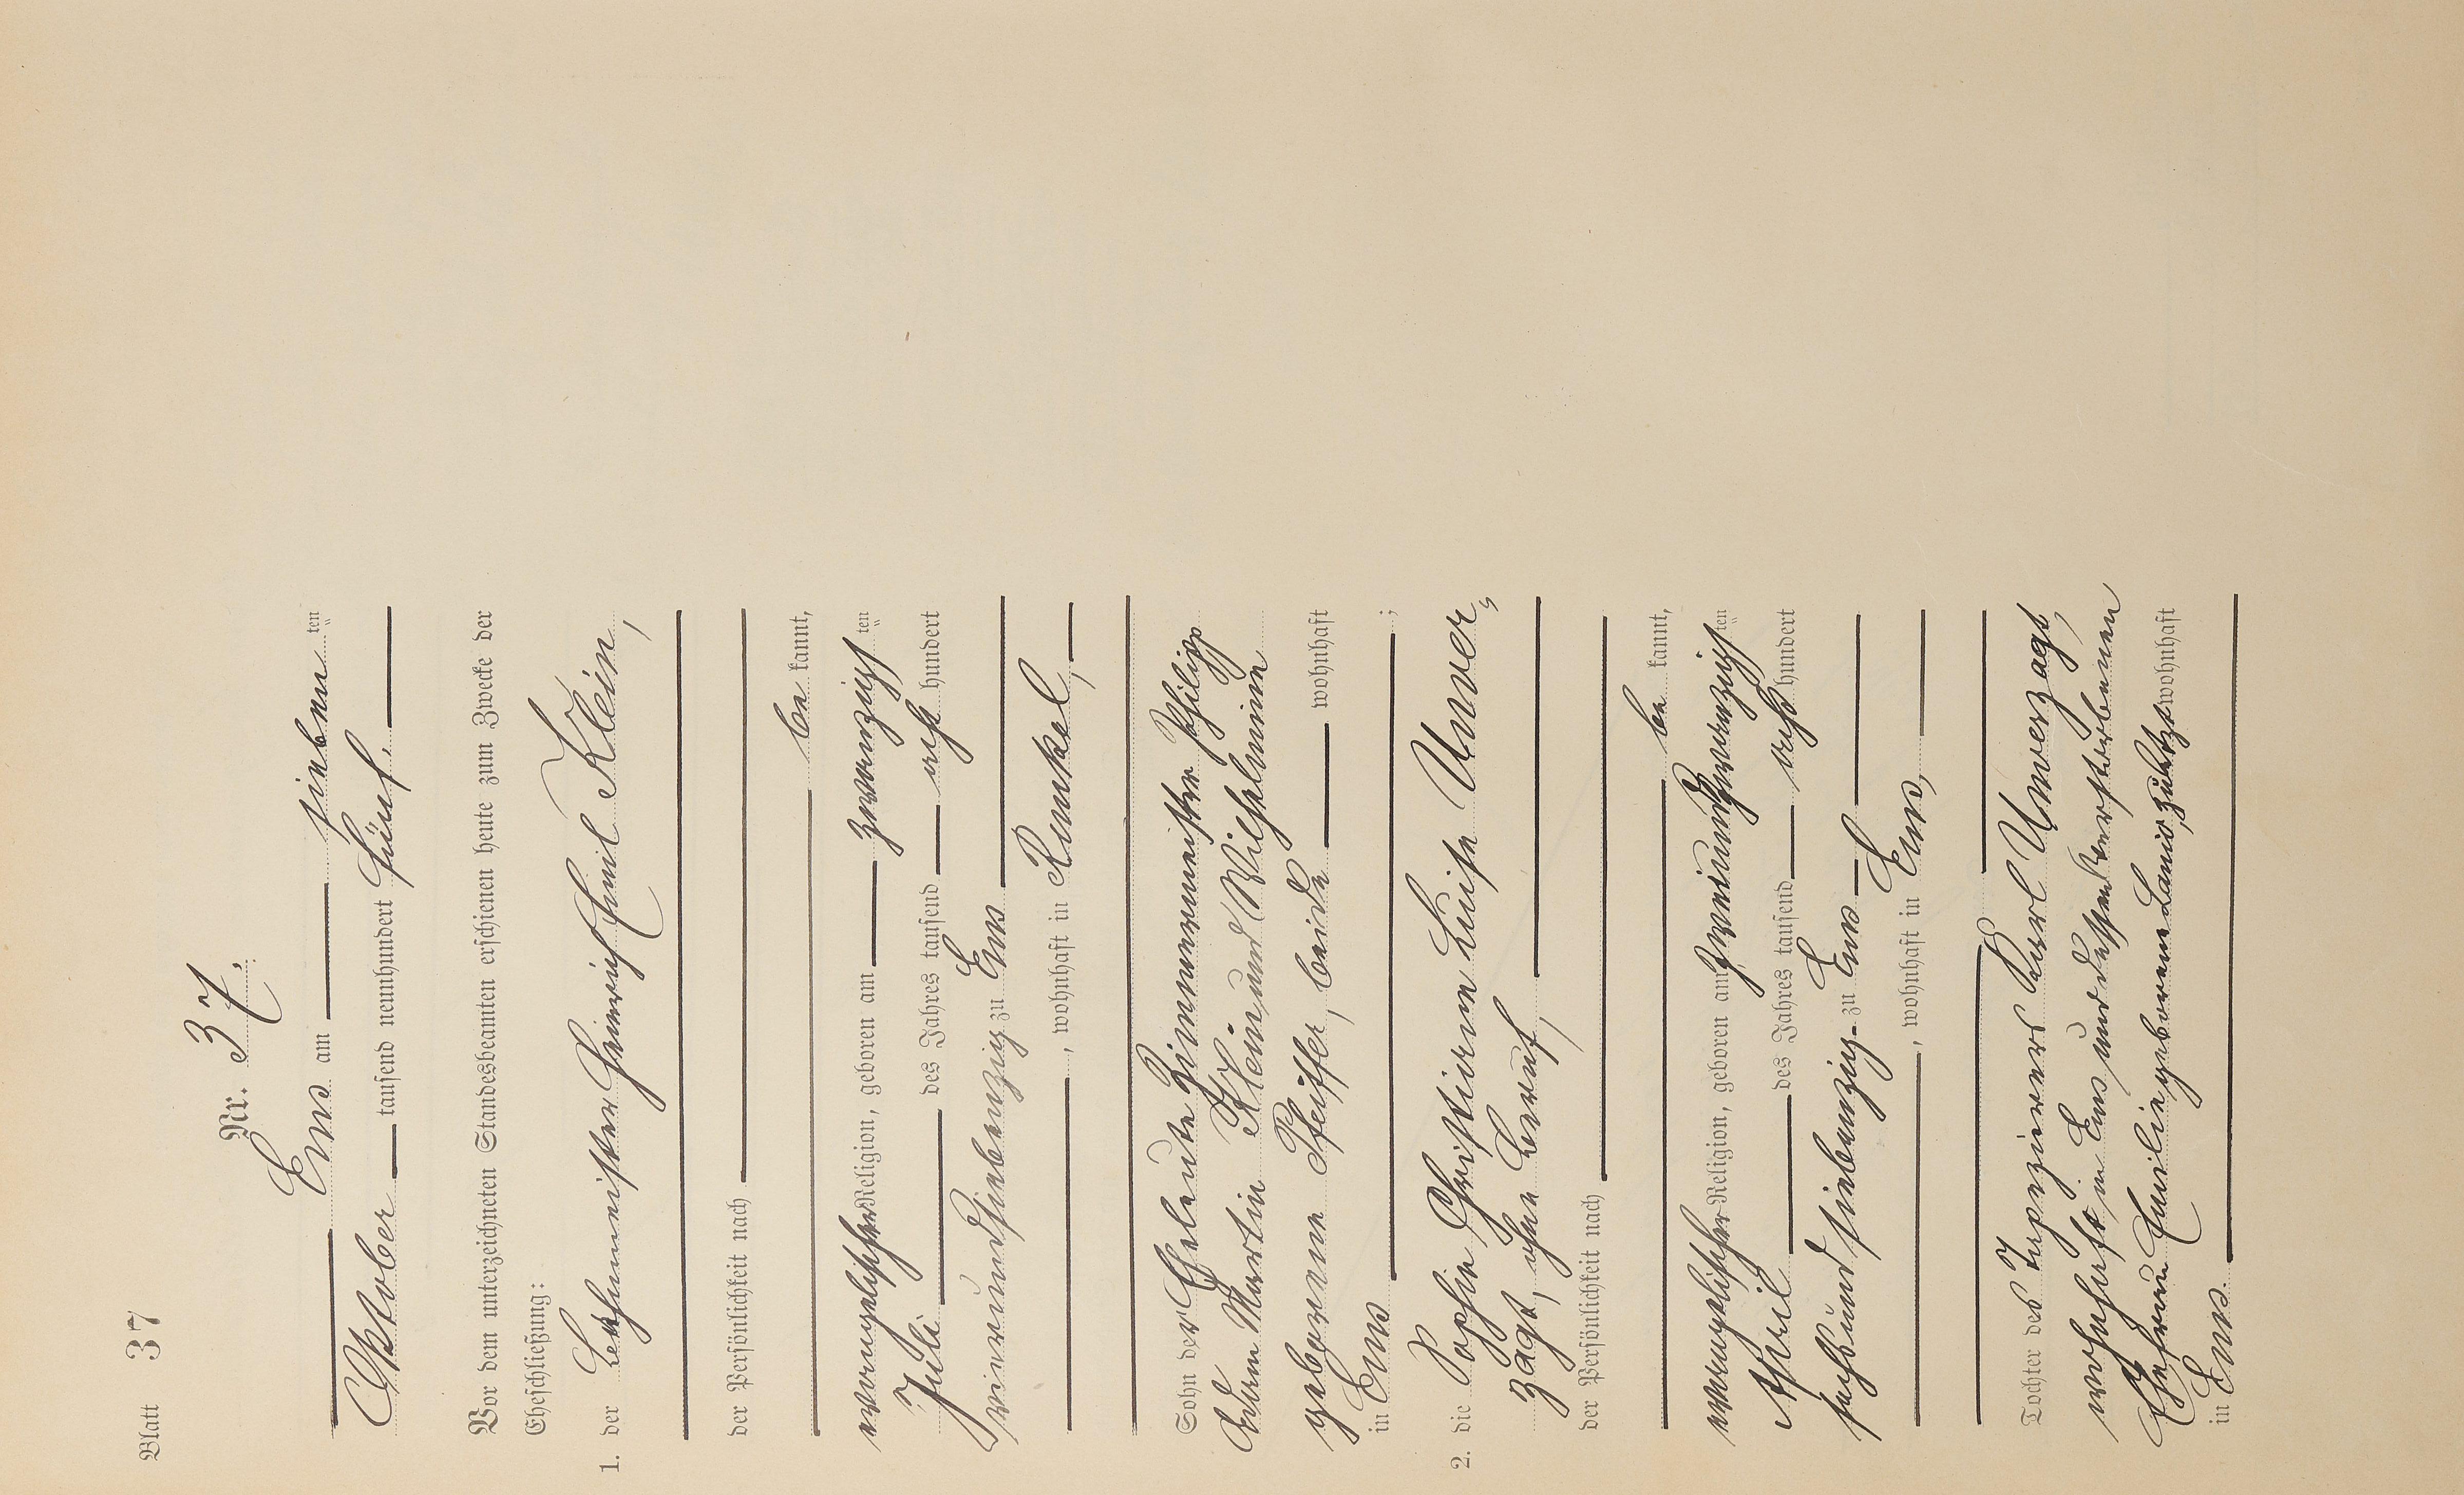 Blatt 37
Nr. 37.
Ems am sieben ten
Oktober tausend neunhundert fünf.
Vor dem unterzeichneten Standesbeamten erschienen heute zum Zwecke der
Eheschließung:
1. der Bahnmeister Heinrich Emil Klein,
der Persönlichkeit nach
be kannt,
evangelischer Religion, geboren am zwanzigs ten
Juli des Jahres tausend acht hundert
vierundsiebenzig zu Ems
, wohnhaft in Runkel,
Sohn der Eheleute Zimmermeister Philipp
Adam Martin Klein und Wilhelmine
geborene Pfeiffer, beide wohnhaft
in Ems ;
2. die Sophie Christiane Luise Unver-
zagt, ohne Beruf,
der Persönlichkeit nach
be kannt,
evangelischer Religion, geboren am zweiundzwanzigs ten
April des Jahres tausend acht hundert
sechsundsiebenzig zu Ems
, wohnhaft in Ems,
Tochter des Tapezierers Karl Unverzagt,
wohnhaft in Ems und dessen verstorbenen
Ehefrau Emilie geborene Lanio, zuletzt wohnhaft
in Ems.